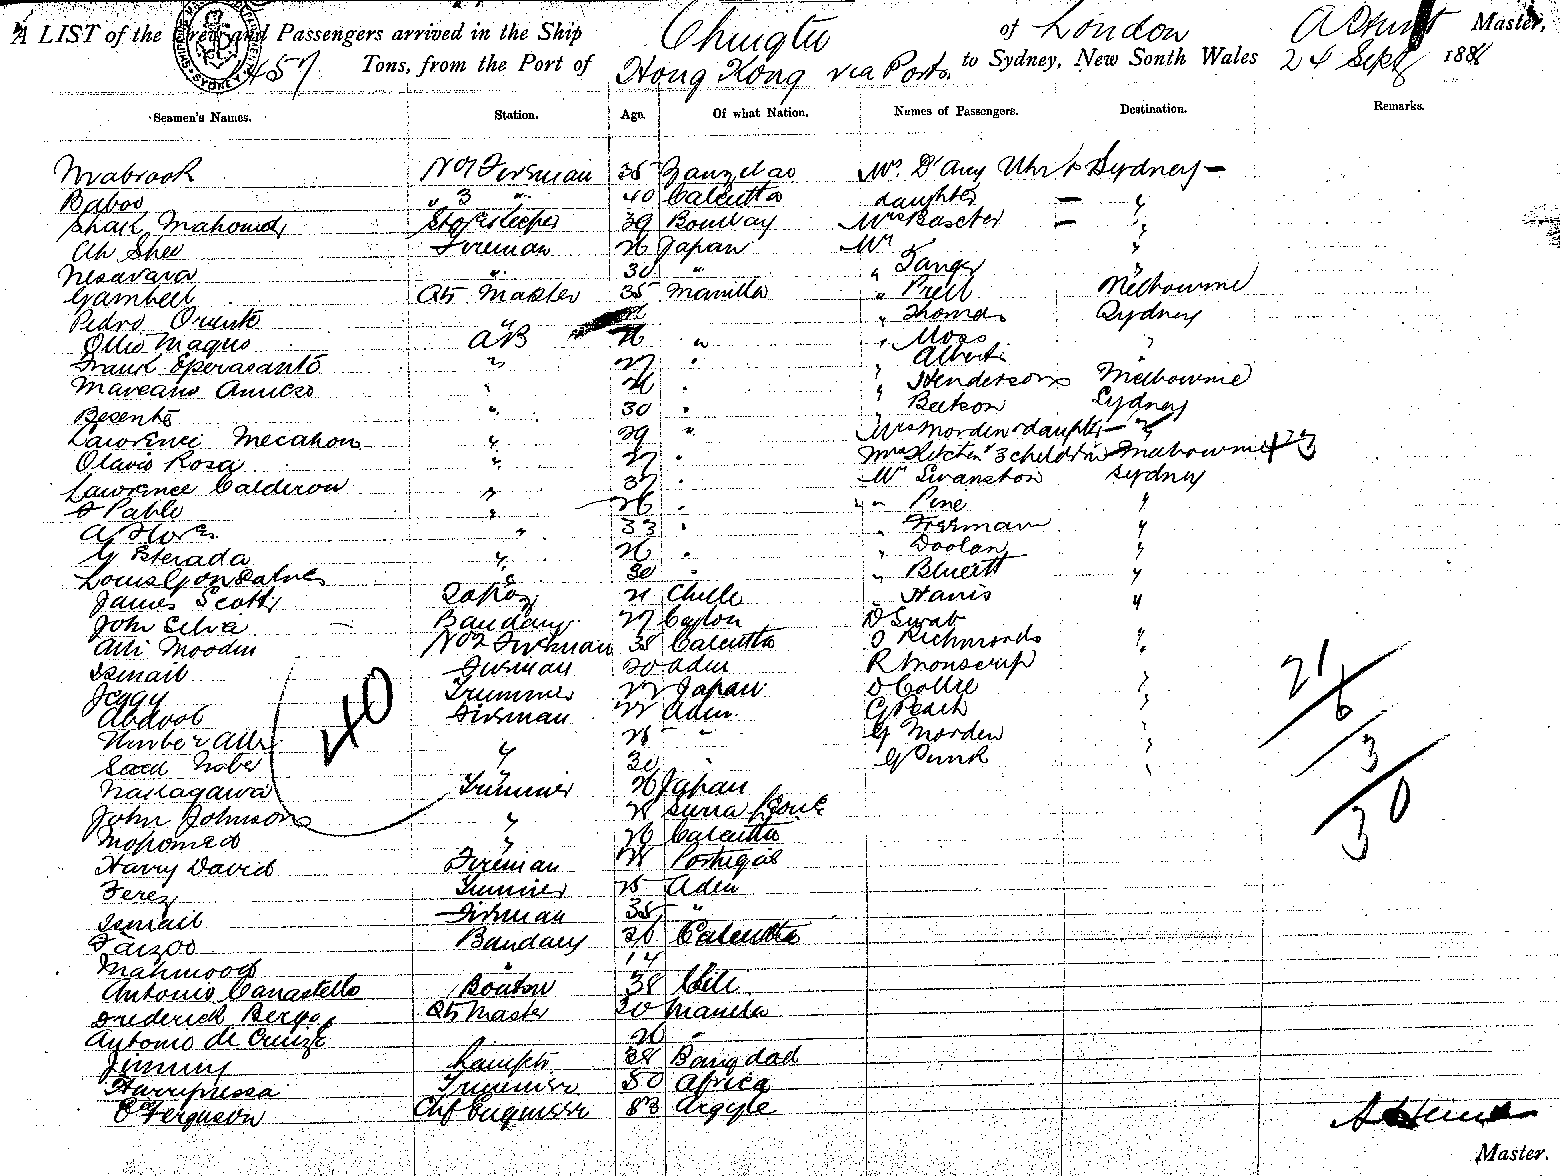 A LIST of the Crew and Passengers arrived in the Ship Chingtu of London Master,
1457 Tons, from the Port of Hong Kong via Ports to Sydney, New South Wales 24 Sept 1886
Seamen's Names. Station. Age. Of what Nation. Names of Passengers. Destination. Remarks.
Mabrook No 1 Fireman 35 Mr D'Arcy Uhr & Sydney
Baboo " 3 " 40 Calcutta daughter "
Shaik Mahomed Storekeeper 39 Bombay Mrs Baxter "
Ah Shee Fireman 26 Japan Mr "
Nesavara " 30 " "
Gambell Qtr Master 35 Manilla " Prell Melbourne
Pedro " " Thomas Sydney
Ollio Magno AB 26 " " Moss "
Frank Eperasanto " 27 " Albert
Mareano " 26 " " Henderson Melbourne
Besento " 30 " " Batson Sydney
Lawrence Mecahon " 29 " Mrs Morden & daughter "
Olavio Rosa " 27 " Mrs Kitchen & 3 children Melbourne
Lawrence Calderon " 37 " Mr Swanston Sydney
Pablo " 26 " " Pine "
A Flores " 33 " " Freeman "
G Esterada " 26 " " Doolan "
Louis Gonsalves " 30 " " Bluett "
James Scott 21 Chille " Harris "
John Silva Bandary 27 Ceylon D Swab
Alli Moodin No 2 Fireman 38 Calcutta Richmonds "
Ismail Fireman 20 Aden R
Jeggy Trimmer 22 Japan D Collie "
Abdool Fireman 22 Aden G Peach "
Alli 28 " G Morden "
Saed " 30 G "
Nakagawa Trimmer 26 Japan
John Johnson " 28 Sierra Leone
Mohomed " 26 Calcutta
Harry David Fireman 28 Portugal
Ferez Trimmer 25 Aden
Ismail Fireman 35 "
Faizoo Bandary 26 Calcutta
Mahmood " 14
Antonio Canastello 38 Chile
Frederick Qtr Master 30 Manila
Antonio de 26 "
Jimmy Lamps 38 Bangdad
Trimmer 30 Africa
Ferguson Chf Engineer 53 Argyle
40
21
6
3
30
Master.